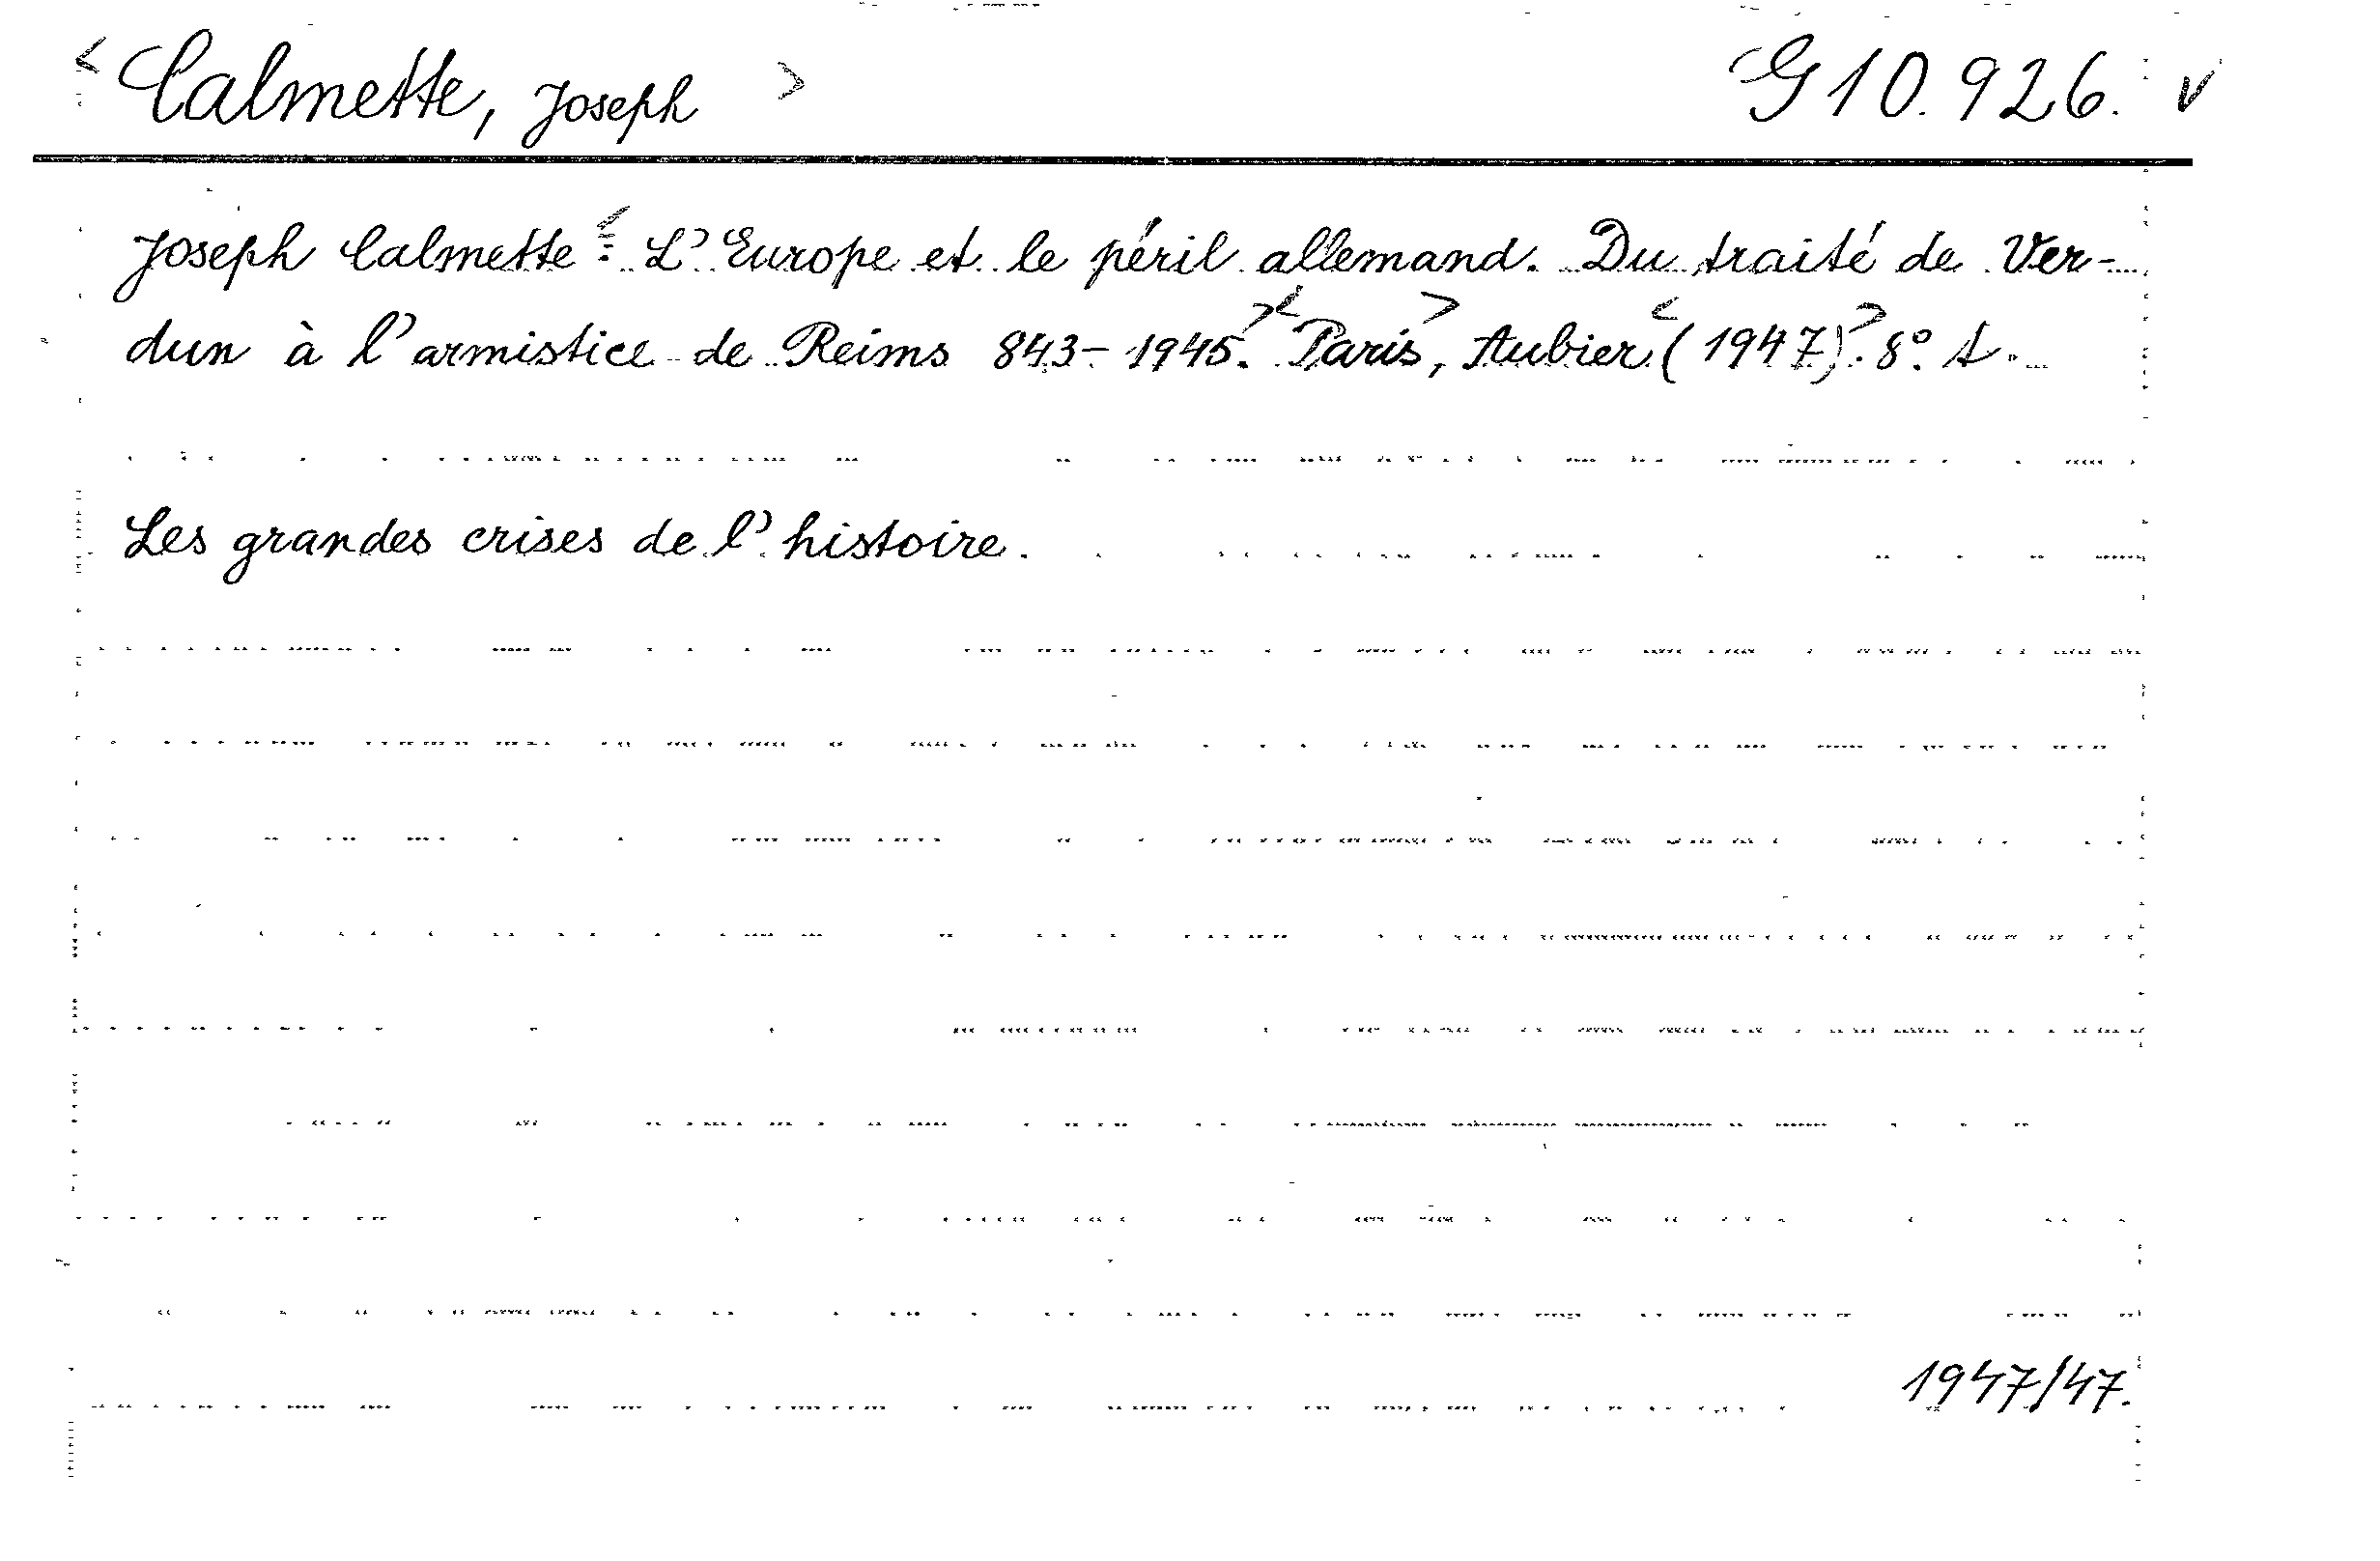 < Calmette, Joseph > G 10.926. v
Joseph Calmette: L'Europe et le péril allemand. Du traité de Ver-
dun à l'armistice de Reims 843-1945. Paris, Aubier (1947). 8°. A.
Les grandes crises de l'histoire.
1947/47.